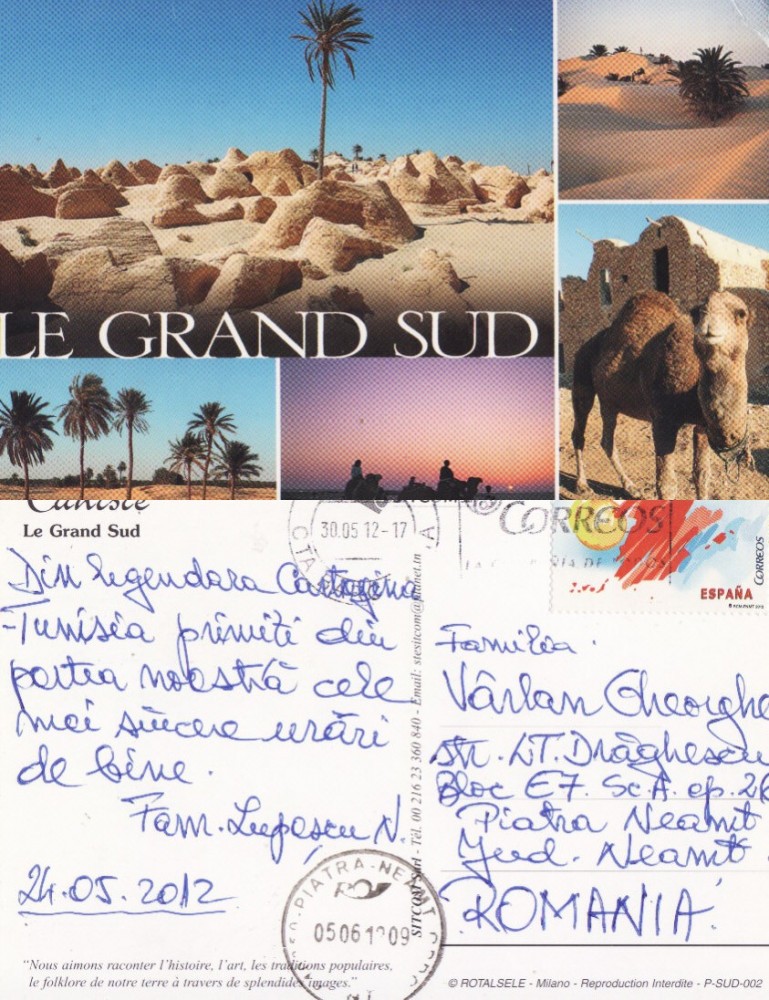 LE GRAND SUD
Tunisie
Le Grand Sud
30.05 12-17
CORREOS
ESPAÑA
CORREOS
Din legendara Cartagina
-Tunisia primiți din
partea noastră cele
mai sincere urări
de bine.
Fam. Lupașcu N.
24.05.2012
SITCOM Sarl - Tél. 00 216 23 360 840 - Email: stesitcom@planet.tn
Familia
Vârlan Gheorghe
str. LT. Drăghescu
Bloc E7 Sc.A. ap. 26
Piatra Neamț
Jud. Neamț.
ROMANIA.
PIATRA-NEAMT
0506 09
"Nous aimons raconter l'histoire, l'art, les traditions populaires,
le folklore de notre terre à travers de splendides images."
© ROTALSELE - Milano - Reproduction Interdite - P-SUD-002